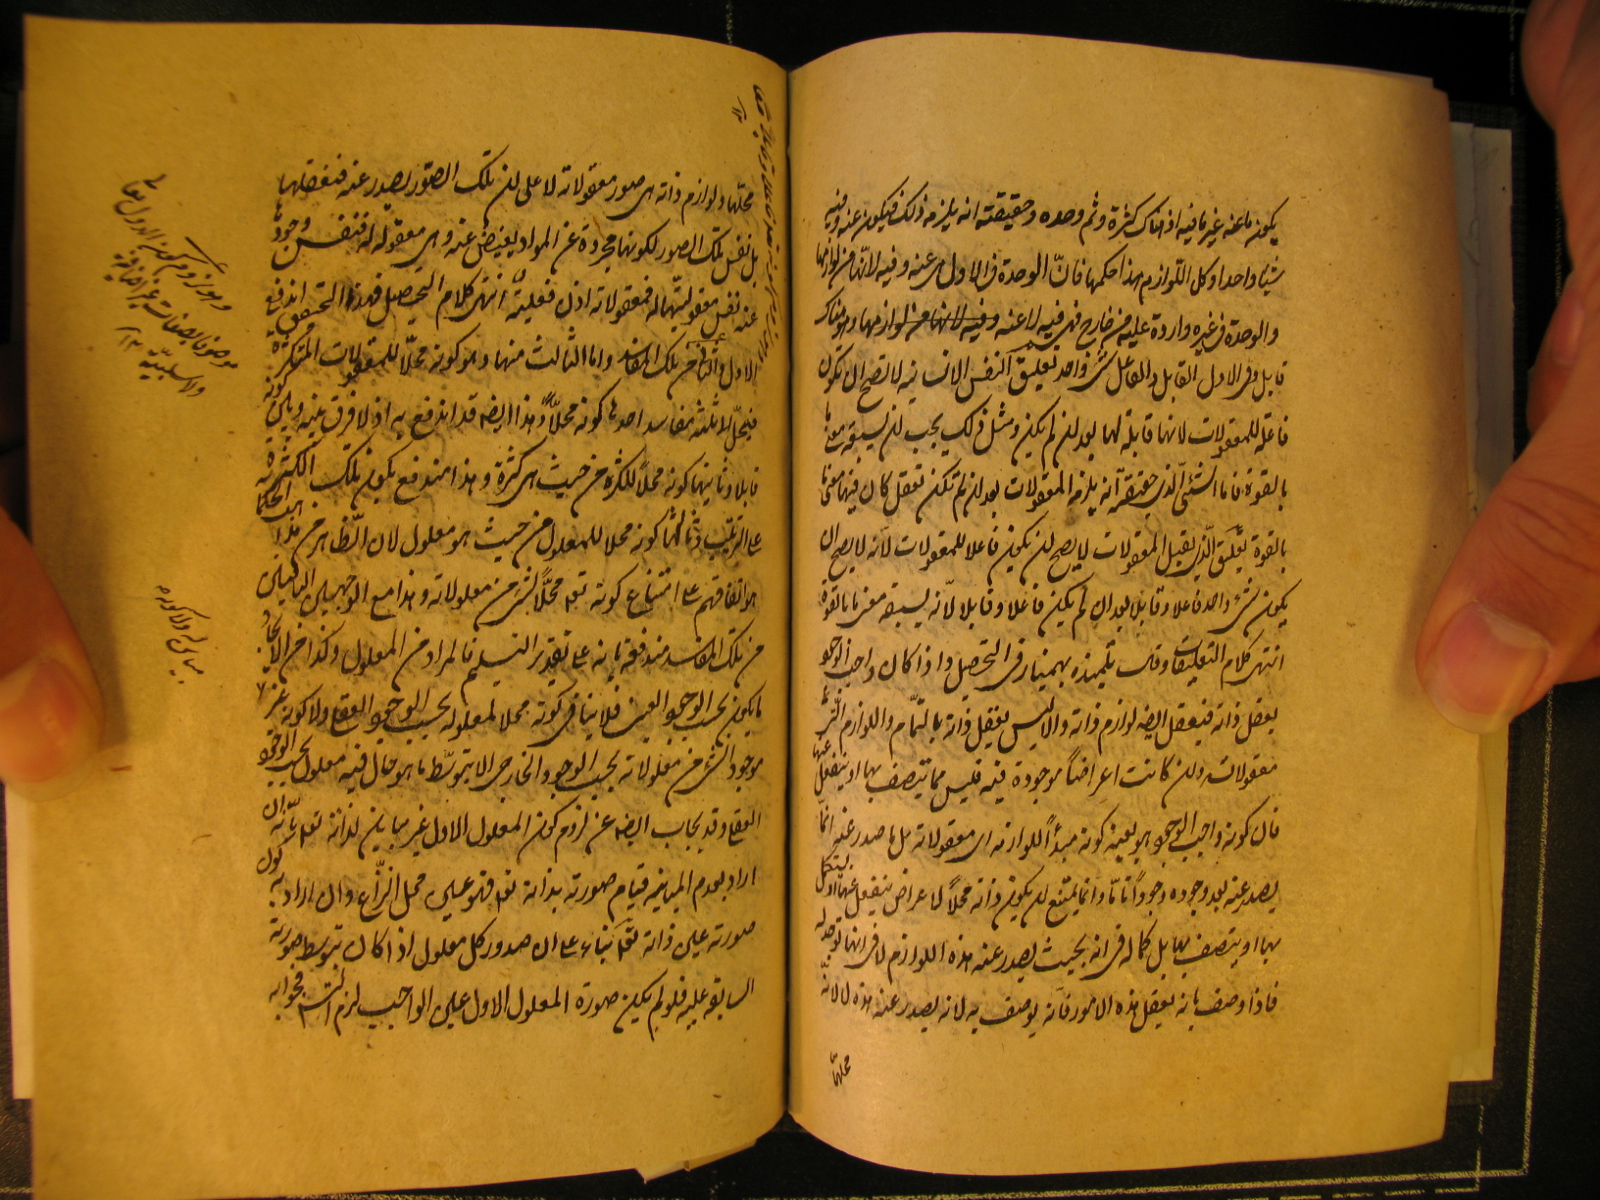 يكون ما عنه غير ما فيه اذ هناك كثرة وثم وحده وحقيقته انه يلزمه ذلك فيكون عنه وفيه
شيئا واحدا وكل اللوازم هذا حكمها فانّ الوحدة فى الاول هى عنه وفيه لانّها من لوازمها
والوحدة فى غيره واردة عليه من خارج فهى فيه لا عنه وفيه لانها من لوازمها وهو هناك
قابل وفى الاول القابل والفاعل شئ واحد تعليق النفس الانسانيه لا تصح ان تكون
فاعلة للمعقولات لانها قابلة لها بعد ان لم يكن ومثل ذلك يجب ان يسبقه معنى ما
بالقوة فاما الشئ الّذى حقيقته انه يلزمه المعقولات بعد ان لم تكن تعقل كان فيها معنى ما
بالقوة تعليق الّذى يقبل المعقولات لا يصح ان يكون فاعلا للمعقولات لانه لا يصح ان
يكون شئ واحد فاعلا وقابلا بعد ان لم يكن فاعلا وقابلا لانّه يسبقه معنى ما بالقوة
انتهى كلام التعليقات وقال تلميذه بهمنيار فى التحصيل واذا كان واجب الوجود
يعقل ذاته فيعقل ايضه لوازم ذاته والا ليس يعقل ذاته بالتّمام واللوازم الّتى هى
معقولاته وان كانت اعراضاً موجودة فيه فليس مما يتصف بها او ينفعل عنها
فان كونه واجب الوجود هو بعينه كونه مبدأً للوازمه اى معقولاته بل ما صدر عنه انّما
يصدر عنه بعد وجوده وجوداً تامّا وانما يمتنع ان يكون ذاته محلاً لاعراض ينفعل عنها او يستكمل
بها او يتصف بها بل كماله فى انه بحيث يصدر عنه هذه اللوازم لا فى انها توجد له
فاذا وصف بانه يعقل هذه الامور فانه يوصف به لانه يصدر عنه هذه لا لانّه
محلها
محلها ولوازم ذاته هى صور معقولاته لا على ان تلك الصور يصدر عنه فنعقلها
بل نفس تلك الصور لكونها مجردة عن المواد يفيض عنه وهى معقولة له فنفس وجودها
عنه نفس معقوليتها له فمعقولاته اذن فعلية انتهى كلام التحصيل فهذا التحقيق اندفع
الاول والثانى من تلك المفاسد واما الثالث منها وهو كونه محلاّ للمعقولات المتكثرة
فينحلّ لا ثلثة مفاسد احدها كونه محلاًّ وهذا ايضه قد اندفع به اذ لا فرق بينه وبين كونه
قابلا وثانيها كونه محلاً للكثرة من حيث هى كثرة وهذا مندفع بكون تلك الكثرة
على الترتيب وثالثها كونه محلا للمعلول من حيث هو معلول لان الظاهر من مذاهب الحكما
هو اتفاقهم على امتناع كونه تعه محلاًّ لشئ من معلولاته وهذا مع الوجهين الباقيين
من تلك المفاسد مندفعة بانه على تقدير التسليم فالمراد من المعلول وكذا من الايجاد
ما يكون بحسب الوجود العينى فلا ينافى كونه محلا لمعلوله بحسب الوجود العقلى ولا كونه غير
موجود لشئ من معلولاته بحسب الوجود الخارجى الا بتوسّط ما هو حال فيه معلول بحسب الوجود
العقلى وقد يجاب ايضه عن لزوم كون المعلول الاول غير مباين لذاته تعه بانّه ان
اراد بعدم المباينه قيام صورته بذاته تعه فهو عين محل النّزاع وان اراد به كون
صورته عين ذاته تعه بناء على ان صدور كل معلول اذا كان بتوسط صورته
السابقه عليه فلو لم يكن صورة المعلول الاول عين الواجب لزم التسلسل فجوابه